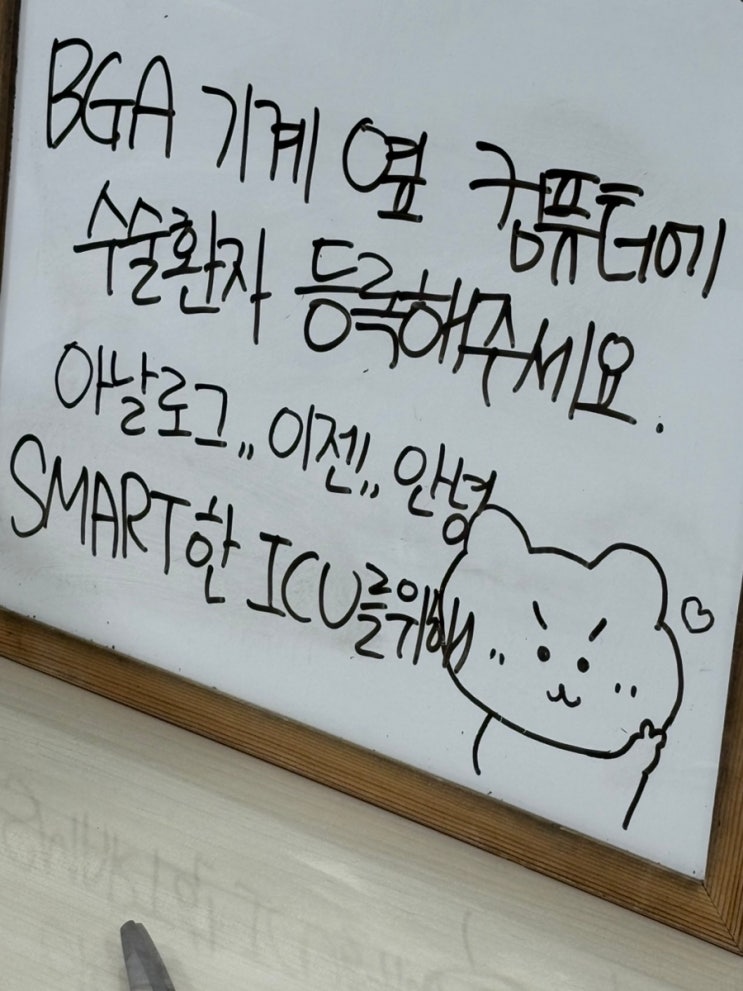 BGA 기계 옆 컴퓨터에
수술환자 등록해주세요.
아날로그,, 이젠,, 안녕
SMART한 ICU를위해